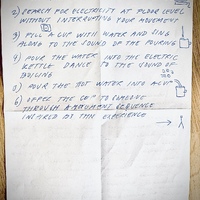 2) SEARCH FOR ELECTRICITY AT FLOOR LEVEL
WITHOUT INTERRUPTING YOUR MOVEMENT
3) FILL A CUP WITH WATER AND SING
ALONG TO THE SOUND OF THE POURING
4) POUR THE WATER INTO THE ELECTRIC
KETTLE DANCE TO THE SOUND OF
BOILING
5) POUR THE HOT WATER INTO A CUP
6) OFFER THE CUP TO SOMEONE
THROUGH A MOVEMENT SEQUENCE
INSPIRED BY THIS EXPERIENCE